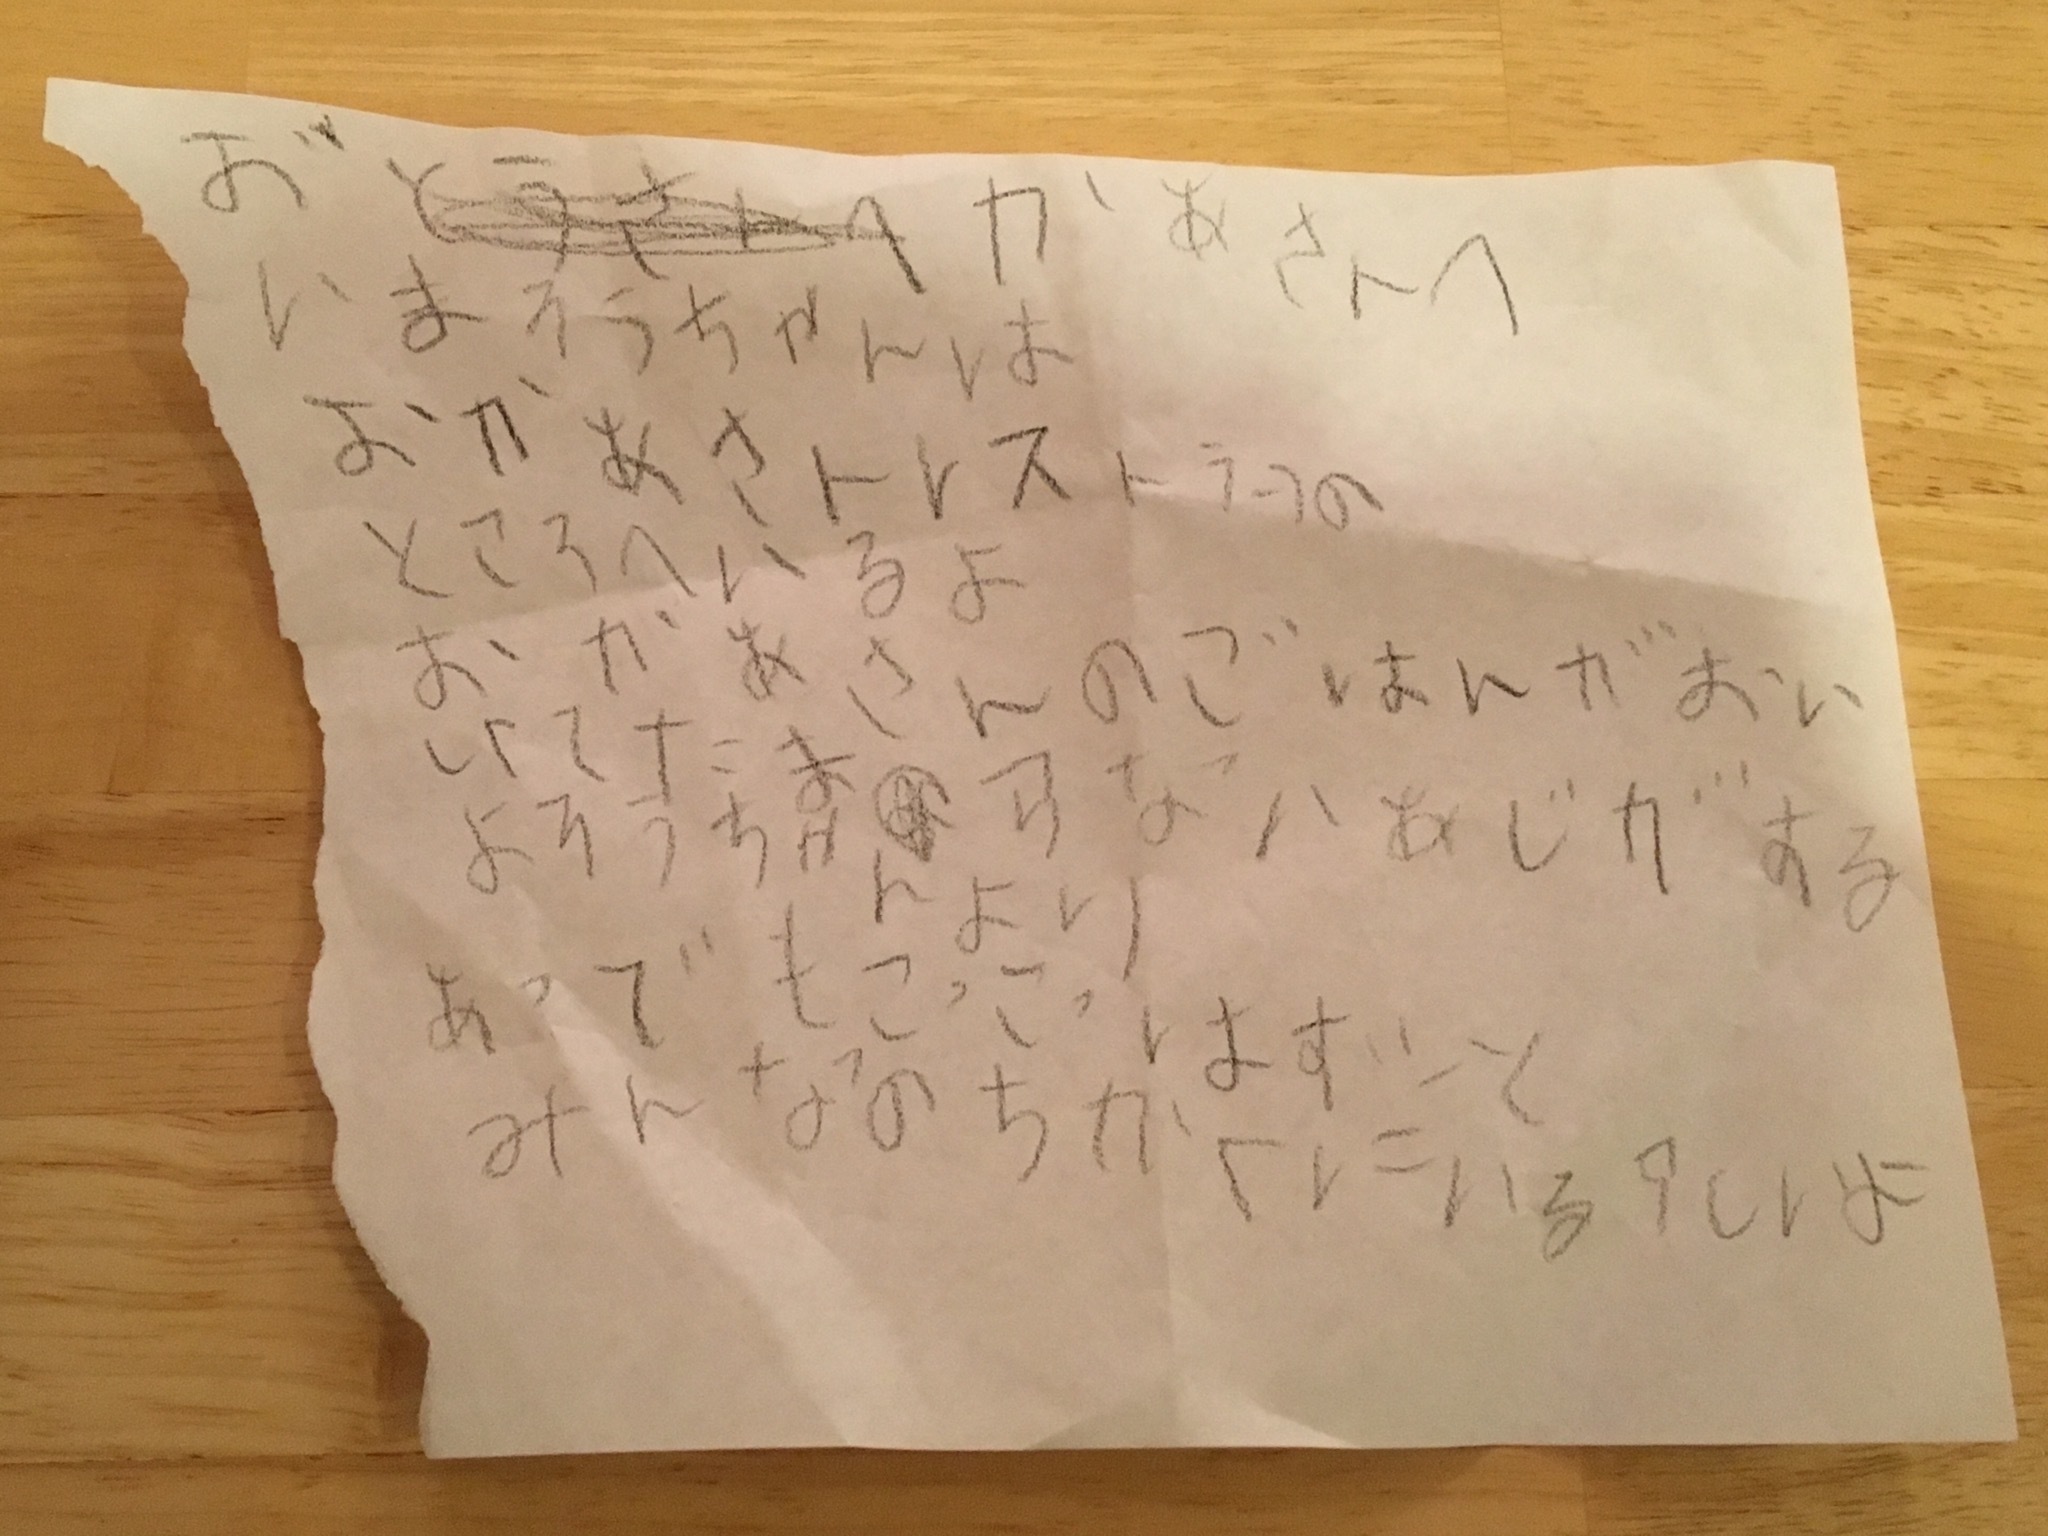 お かあさんへ
いまそうちゃんは
おかあさんレストラーの
ところへいるよ
おかあさんのごはんがおい
いてたにま なあじがする
よそうちゃんより
あってもこっこっはずーと
みんなのちかくにいる しいよ